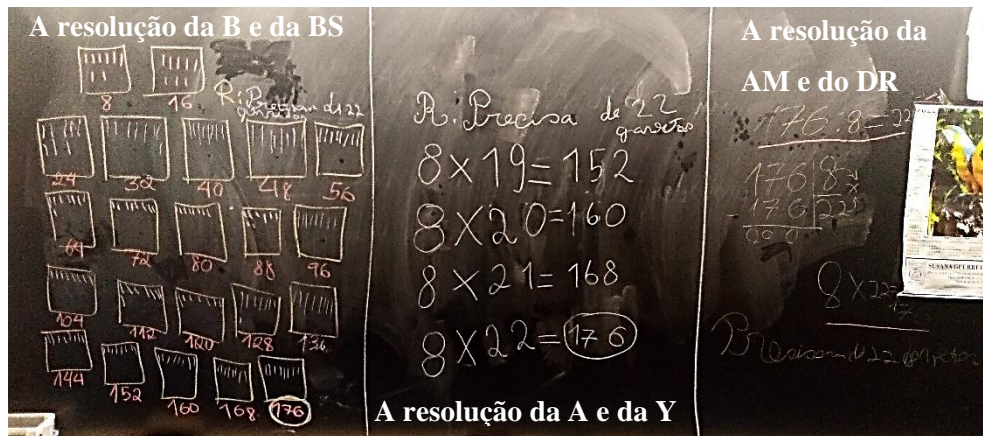 A resolução da B e da BS
8 16
R: Precisam de 22
gavetas
24 32 40 48 56
64 72 80 88 96
104 112 120 128 136
144 152 160 168 176
R: Precisa de 22
gavetas
8 X 19 = 152
8 X 20 = 160
8 X 21 = 168
8 X 22 = 176
A resolução da A e da Y
A resolução da
AM e do DR
176 : 8 = 22
176 8
- 176 22
000
8 X 22 =
Precisam de 22 gavetas